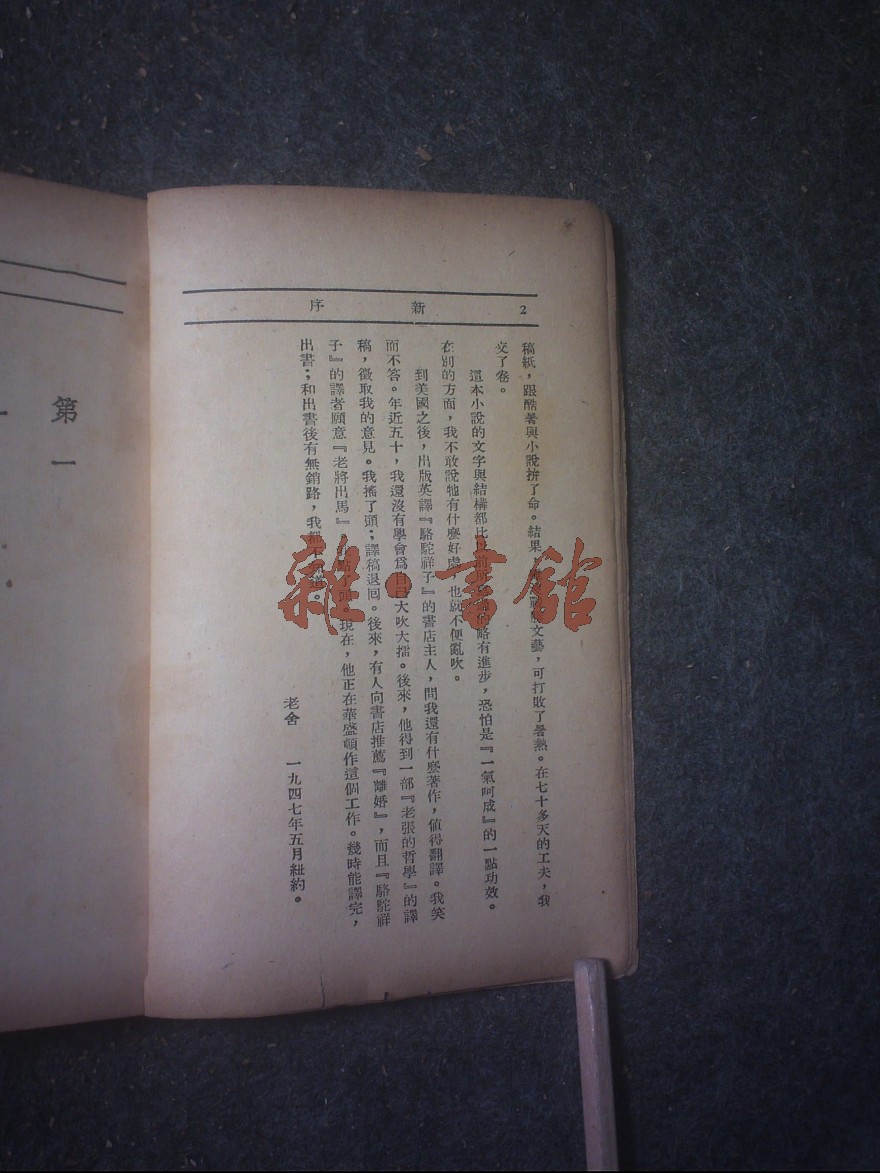 2 新序
稿紙，跟酷暑與小說拚了命。結果，文藝，可打敗了暑熱。在七十多天的工夫，我
交了卷。
這本小說的文字與結構都比以前所略有進步，恐怕是『一氣呵成』的一點功效。
在別的方面，我不敢說牠有什麼好處，也就不便亂吹。
到美國之後，出版英譯『駱駝祥子』的書店主人，問我還有什麼著作，値得翻譯。我笑
而不答。年近五十，我還沒有學會爲自己大吹大擂。後來，他得到一部『老張的哲學』的譯
稿，徵取我的意見。我搖了頭；譯稿退回。後來，有人向書店推薦『離婚』，而且『駱駝祥
子』的譯者願意『老將出馬』點了頭。現在，他正在華盛頓作這個工作。幾時能譯完，
出書；和出書後有無銷路，我都不知道。
老舍 一九四七年五月紐約。
第一
雜·書館